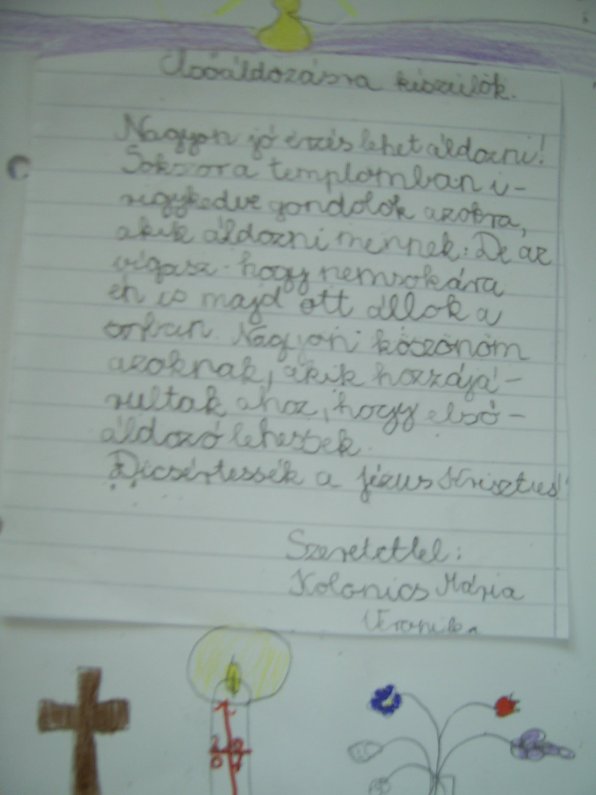 Elsőáldozásra készülök.
Nagyon jó érzés lehet áldozni!
Sokszor a templomban i-
rigykedve gondolok azokra,
akik áldozni mennek. De az
vígasz hogy nemsokára
én is majd ott állok a
sorban. Nagyon köszönöm
azoknak, akik hozzájá-
rultak ahoz, hogy első-
áldozó lehessek.
Dicsértessék a Jézus Krisztus!
Szeretettel:
Kolonics Mária
Veronika
2 0
0